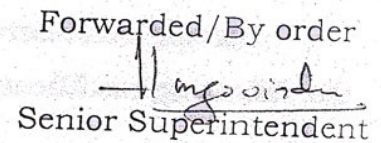 Forwarded/By order
Senior Superintendent